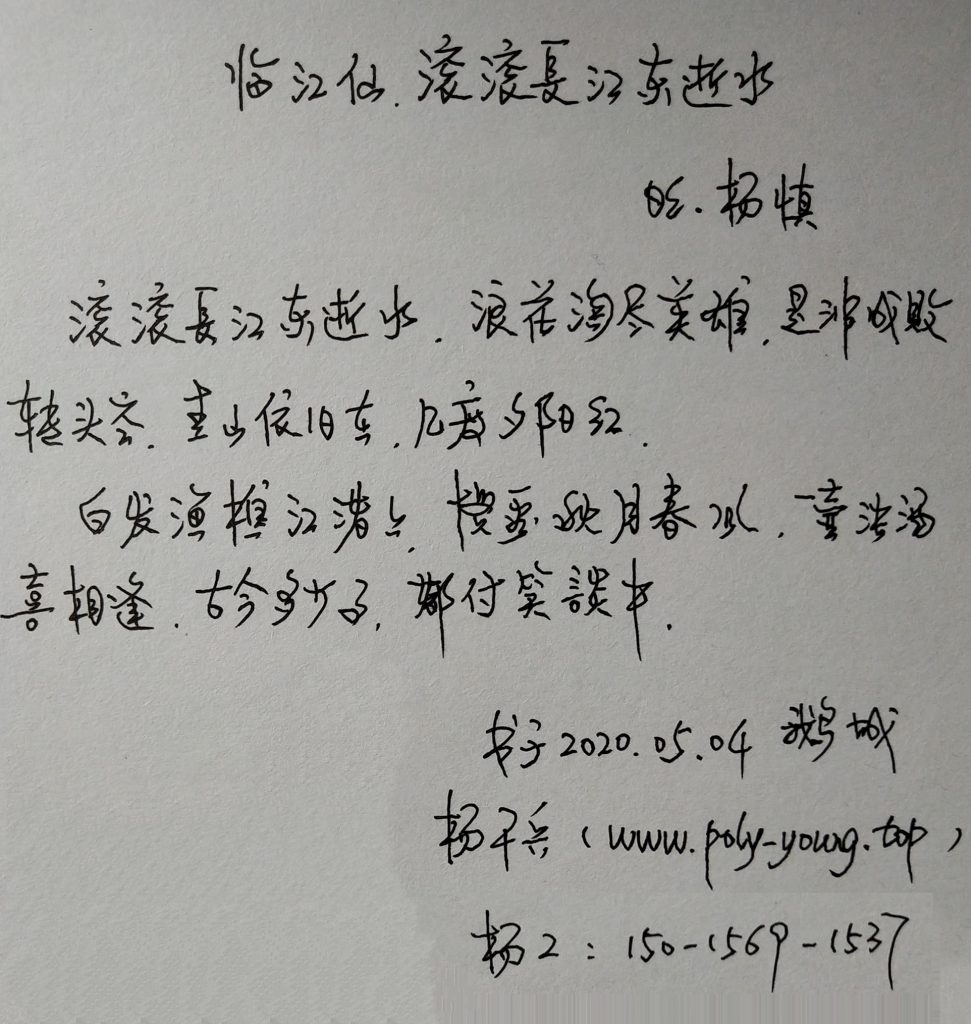 临江仙.滚滚長江东逝水
明.杨慎
滚滚長江东逝水,浪花淘尽英雄,是非成败
转头空.青山依旧在,几度夕阳红.
白发渔樵江渚上,惯看秋月春风.一壶浊酒
喜相逢.古今多少事,都付笑談中.
书于2020.05.04 鹅城
杨干兵(www.poly-young.top)
杨工:150-1569-1537